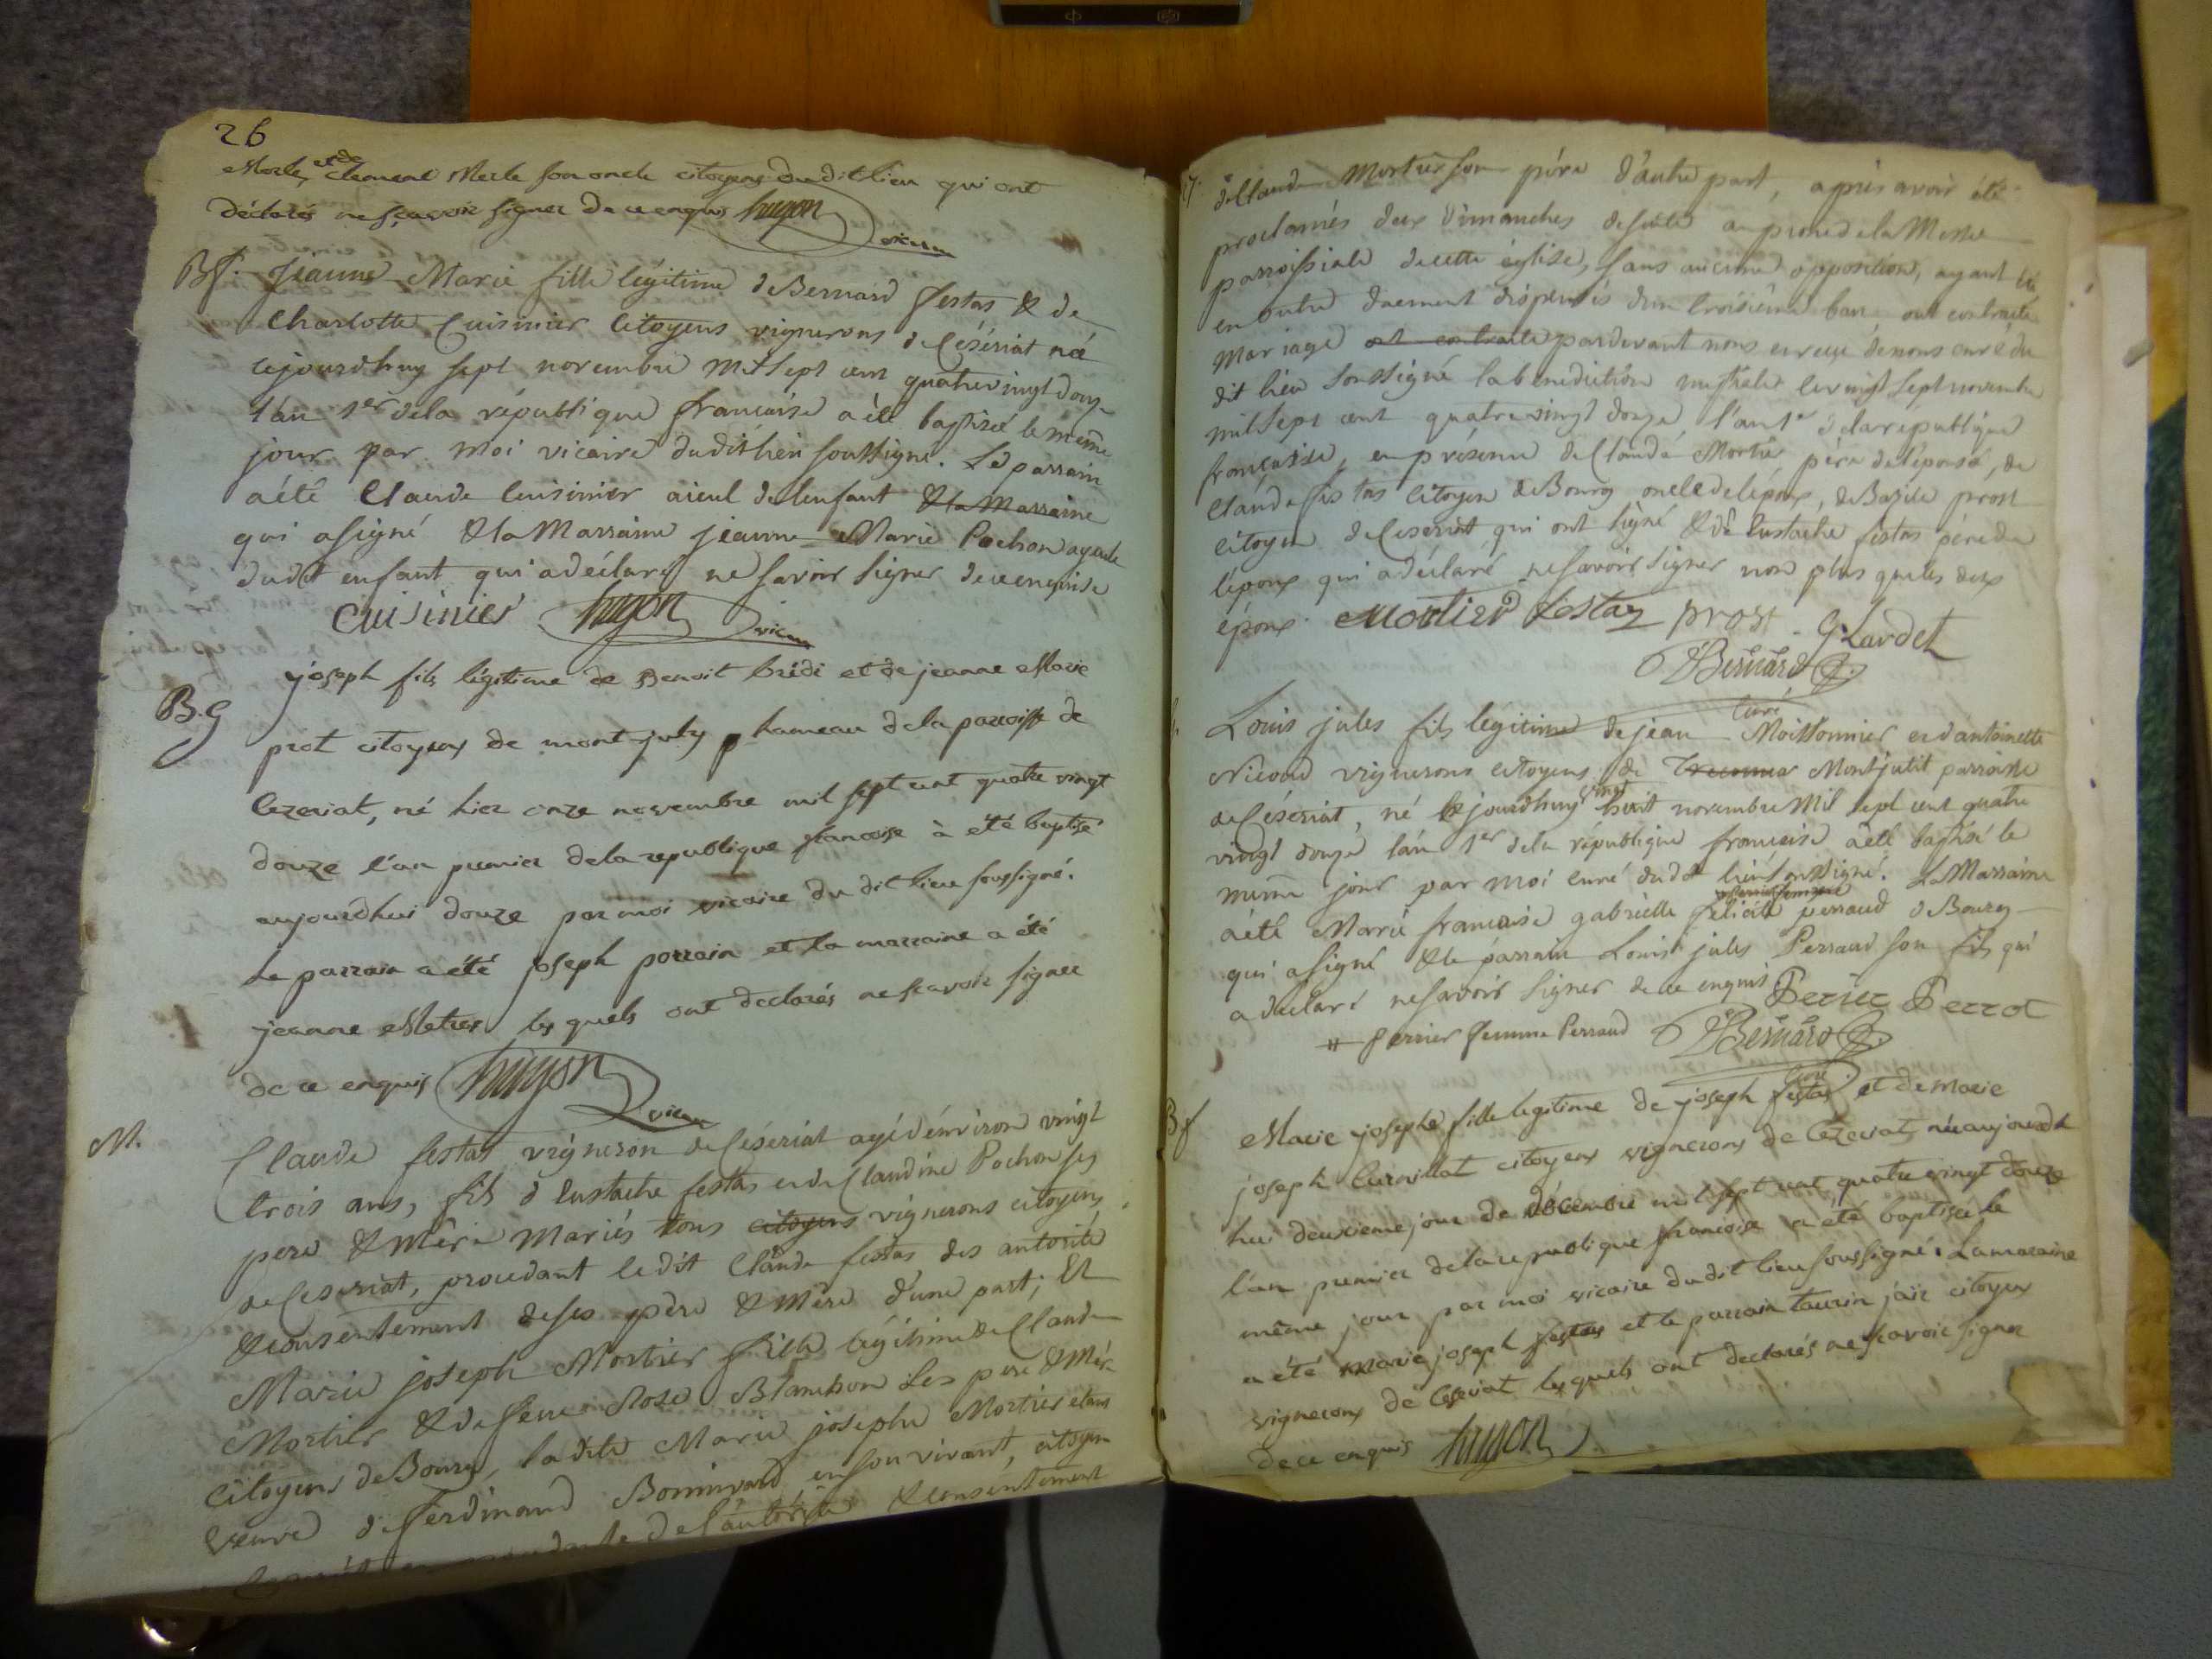 26
Merle, et de clement Merle son oncle citoyens dudit lieu qui ont
déclarés ne sçavoir signer de ce enquis hugon
vicaire
Bf. Jeanne Marie fille légitime de Bernard festas & de
Charlotte Cuisinier Citoyens vignerons de Céseriat née
cejourdhuy sept novembre mil sept cent quatrevingt douze
l'an 1er de la république françoise a été baptisée le même
jour par moi vicaire dudit lieu soussigné. Le parrain
a été Claude Cuisinier aieul de l'enfant & la Marraine
qui a signé & la Marraine jeanne Marie Pochon ayeule
dudit enfant qui a déclaré ne savoir signer de ce enquise
Cuisinier hugon vicaire
B.G joseph fils légitime de Benoit brédi et de jeanne Marie
prot citoyens de mont-july hameau de la parroisse de
Cezeriat, né hier onze novembre mil sept cent quatre vingt
douze l'an premier de la republique francoise à été baptisé
aujourdhui douze par moi vicaire du dit lieu soussigné.
Le parrain a été joseph porrain et la marraine a été
jeanne Metres les quels ont declarés ne scavoir signer
de ce enquis hugon
vicaire
M. Claude festas vigneron de Céseriat agé d'environ vingt
trois ans, fils d'Eustache festas et de Claudine Pochon ses
pere & mère Mariés tous citoyens vignerons citoyens
de Ceseriat, procedant ledit Claude festas des autorité
& consentement de ses père & mère d'une part; Et
Marie joseph Mortier fille légitime de Claude
Mortier & de feue Rose Blanchon ses pere & mère
Citoyens de Bourg, la dite Marie josephe Mortier etant
veuve de ferdinand Bonnivard, en son vivant, citoyen
de l'autorité & consentement
27. de Claude Mortier son père d'autre part, après avoir été
proclamés deux dimanches de suite au prone de la Messe
parroissiale de cette église, sans aucune opposition, ayant été
en outre duement dispensés d'un troisième ban, ont contracté
Mariage ont contracté pardevant nous et reçu de nous curé du
dit lieu soussigné la benediction nuptiale le vingt sept novembre
mil sept cent quatre vingt douze, l'an 1er de la republique
françoise, en présence de Claude Mortier père de l'épouse, de
Claude festas Citoyen de Bourg oncle de l'époux, de Bazile prost
citoyen de Ceseriat qui ont signé & de Eustache festas père de
l'époux qui a déclaré ne savoir signer non plus que les deux
époux. Mortier festaz prost G. Lardet
Bernard
Curé
Louis jules fils légitime de jean Moissonnier et d'antoinette
Nicoud vignerons citoyens de Montjulit parroisse
de Céseriat, né le jourdhuy vingt huit novembre Mil sept cent quatre
vingt douze l'an 1er de la république françoise a été baptisé le
même jour par moi curé dudit lieu soussigné. La Marraine
a été Marie francoise gabrielle felicité perraud de Bourg
qui a signé & le parrain Louis jules Perraud son fils qui
a déclaré ne savoir signer de ce enquis Perier Perrot
# perrier femme Perraud Bernard
Curé.
Bf Marie josephe fille legitime de joseph festas et de Marie
joseph Curvillat citoyens vignerons de Cézeriat, née aujourd'h
hui deuxieme jour de décembre mil sept cent quatre vingt douze
l'an premier de la republique francoise a été baptisée le
même jour par moi vicaire dudit lieu soussigné. La maraine
a été marie joseph festas et le parrain taurin jair citoyens
vignerons de Ceseriat lesquels ont declarés ne scavoir signer
de ce enquis hugon